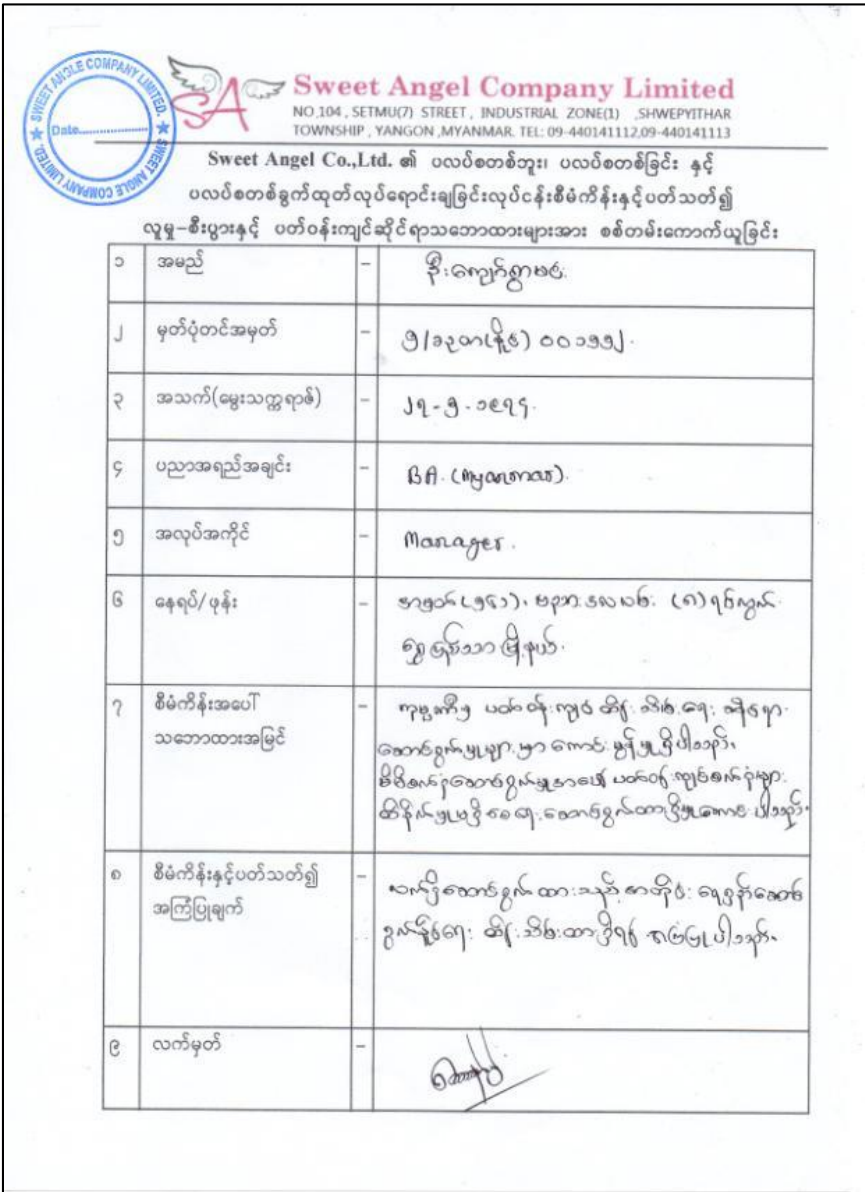 SWEET ANGLE COMPANY LIMITED.
Date
SWEET ANGLE COMPANY LIMITED.
SA
Sweet Angel Company Limited
NO,104 , SETMU(7) STREET , INDUSTRIAL ZONE(1) ,SHWEPYITHAR
TOWNSHIP , YANGON ,MYANMAR. TEL: 09-440141112,09-440141113
Sweet Angel Co.,Ltd. ၏ ပလပ်စတစ်ဘူး၊ ပလပ်စတစ်ခြင်း နှင့်
ပလပ်စတစ်ခွက်ထုတ်လုပ်ရောင်းချခြင်းလုပ်ငန်းစီမံကိန်းနှင့်ပတ်သတ်၍
လူမှု-စီးပွားနှင့် ပတ်ဝန်းကျင်ဆိုင်ရာသဘောထားများအား စစ်တမ်းကောက်ယူခြင်း
၁ အမည် -
၂ မှတ်ပုံတင်အမှတ် -
၃ အသက်(မွေးသက္ကရာဇ်) - ၂၇-၅-၁၉၇၄.
၄ ပညာအရည်အချင်း - BA. (Myanmar).
၅ အလုပ်အကိုင် - Manager.
၆ နေရပ်/ဖုန်း - (၈) ရပ်ကွက်
ရွှေပြည်သာမြို့နယ်.
၇ စီမံကိန်းအပေါ် - ကုမ္ပဏီမှ ပတ်ဝန်းကျင် ထိန်းသိမ်းရေး ဆိုင်ရာ
သဘောထားအမြင် ဆောင်ရွက်မှုများမှာ ကောင်းမွန်မှုရှိပါသည်။
ထိခိုက်မှုမရှိစေရေး ဆောင်ရွက်ထားရှိမှုကောင်းပါသည်။
၈ စီမံကိန်းနှင့်ပတ်သတ်၍ - လက်ရှိဆောင်ရွက်ထားသည့်အတိုင်း ရေရှည်ဆောင်
အကြံပြုချက် ရွက်နိုင်ရေး ထိန်းသိမ်းထားရှိရန် အကြံပြုပါသည်။
၉ လက်မှတ် -